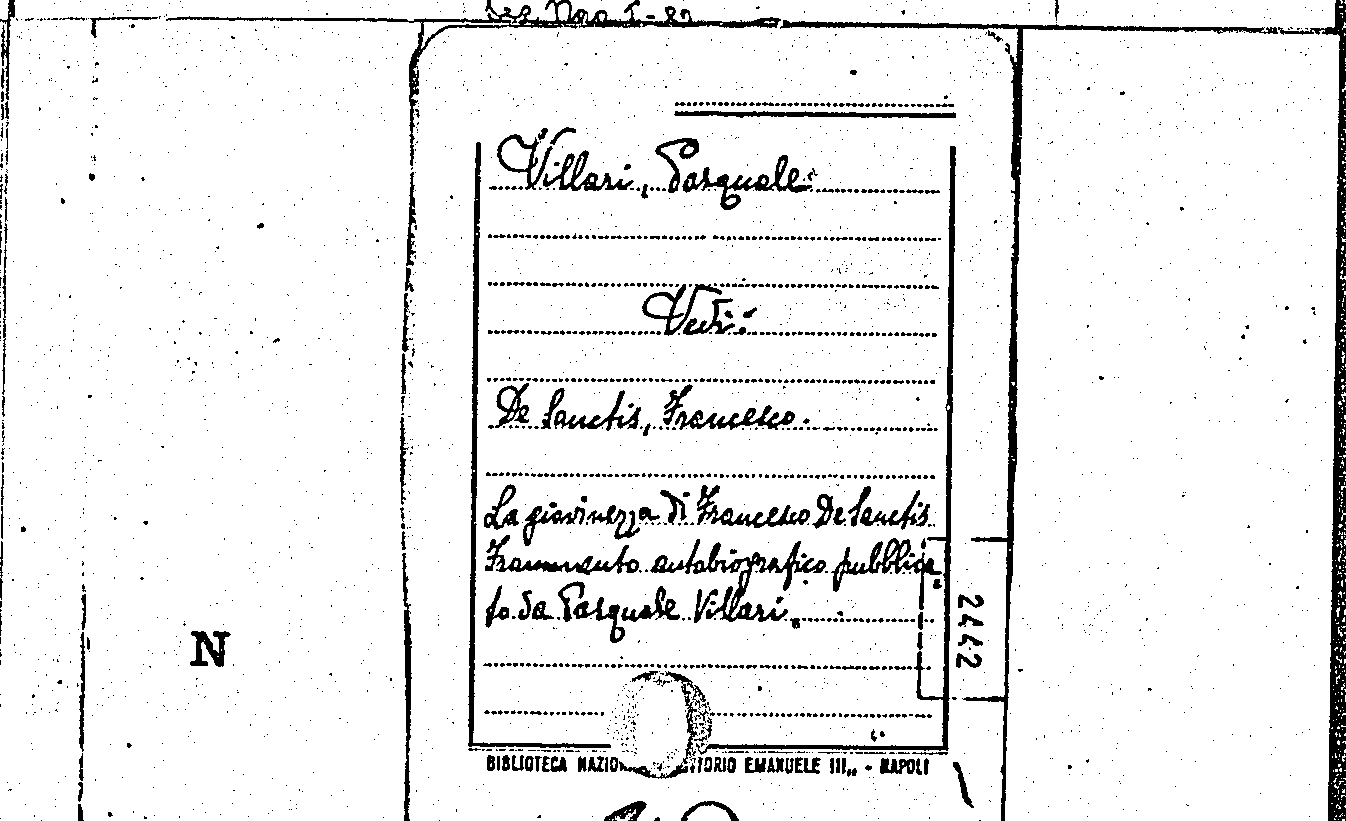 Villari, Pasquale
Vedi:
De Sanctis, Francesco.
La giovinezza di Francesco De Sanctis
Frammento autobiografico pubblica
to da Pasquale Villari.
2442
N
BIBLIOTECA NAZIO TTORIO EMANUELE III,, - NAPOLI